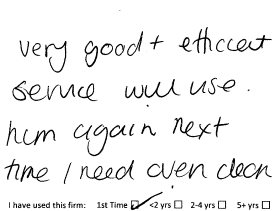 very good + efficcet
service will use.
him again next
time I need oven clean
I have used this firm: 1st Time ☑ <2 yrs ☐ 2-4 yrs ☐ 5+ yrs ☐